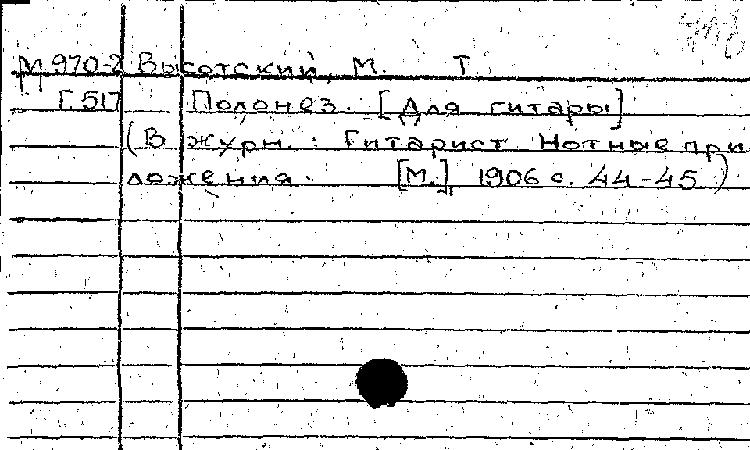 М 970-2 Высотский, М. Т.
Г.517 Полонез. [Для гитары]
(В журн.: Гитарист. Нотные при
ложения. [М.], 1906 с. 44-45)